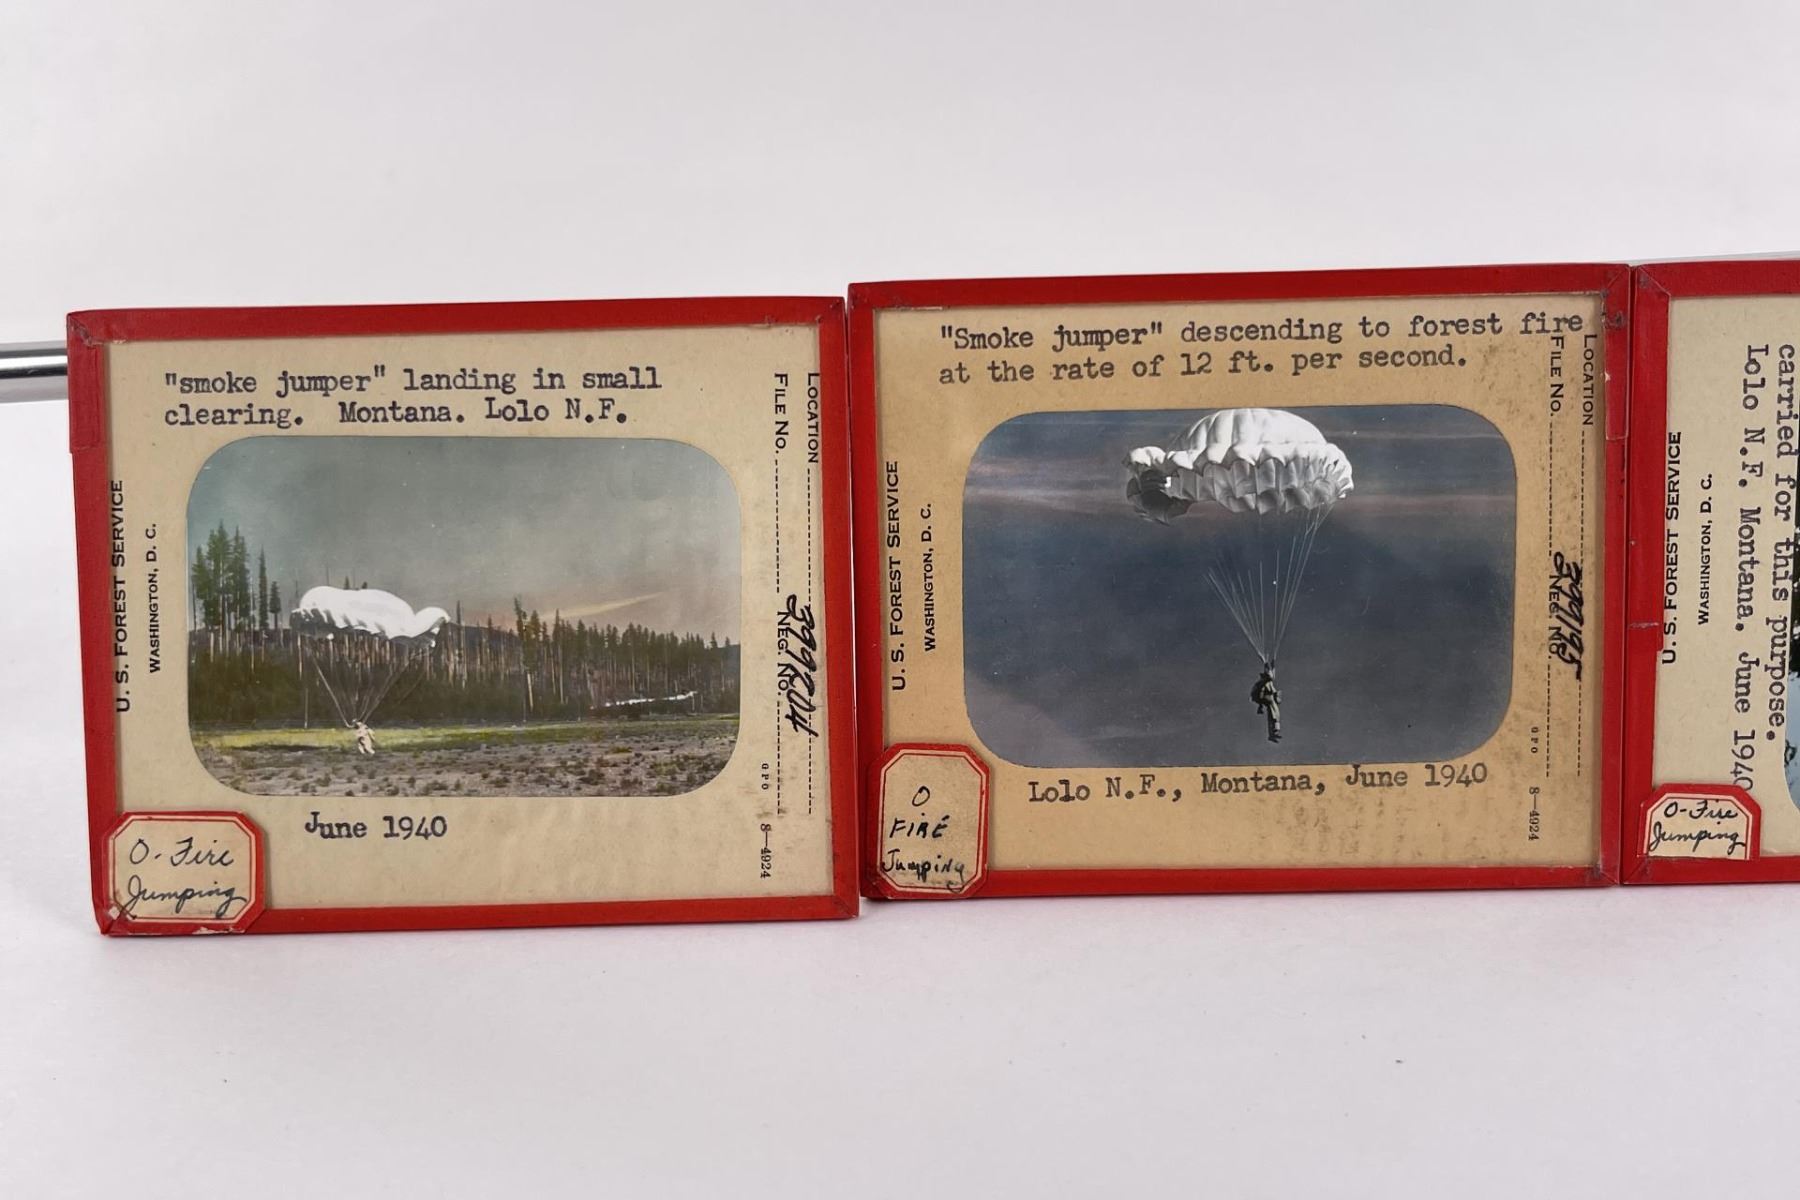 "smoke jumper" landing in small
clearing. Montana. Lolo N.F.
U. S. FOREST SERVICE
WASHINGTON, D. C.
LOCATION
FILE NO.
NEG. NO.
399204
GPO 8—4924
June 1940
O-Fire
Jumping
"Smoke jumper" descending to forest fire
at the rate of 12 ft. per second.
U. S. FOREST SERVICE
WASHINGTON, D. C.
LOCATION
FILE NO.
NEG. NO.
399195
GPO 8—4924
Lolo N.F., Montana, June 1940
O
FIRE
Jumping
carried for this purpose.
Lolo N.F. Montana. June 1940
U. S. FOREST SERVICE
WASHINGTON, D. C.
O-Fire
Jumping